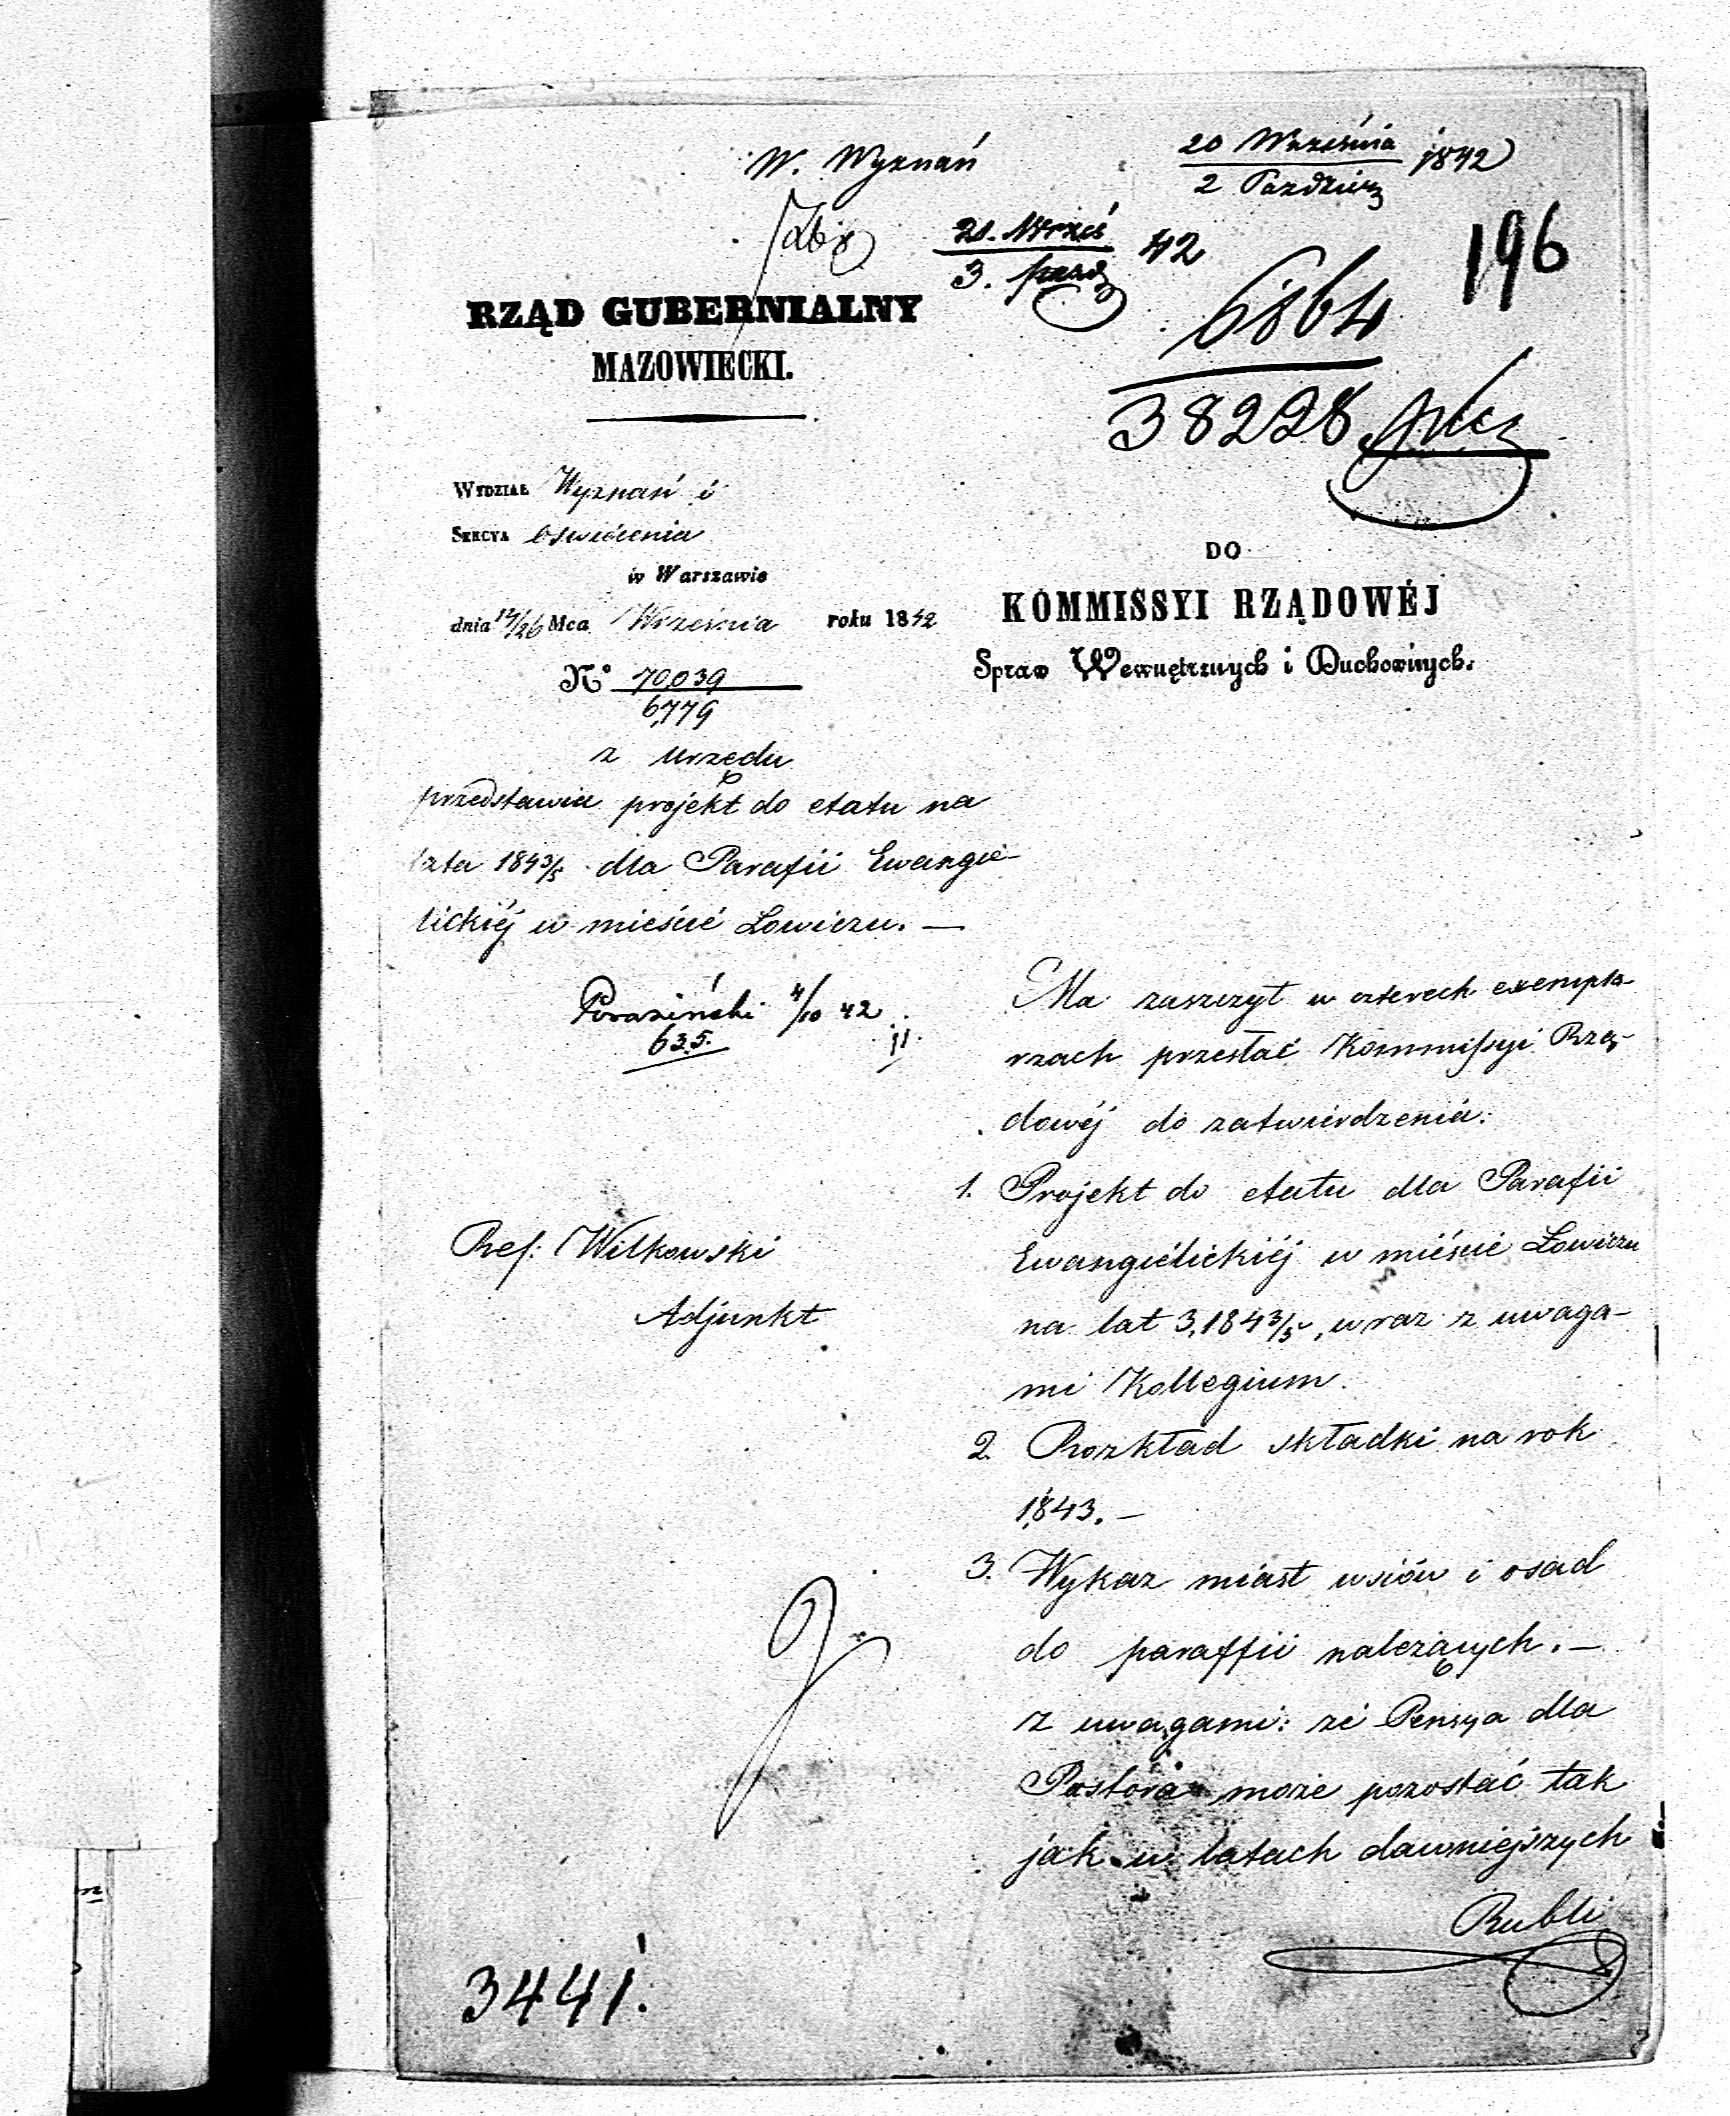 W. Wyznań
20 Września 1842
2 Paździer
21. Wrześ 42
3. pazd
196
6864
38228
RZĄD GUBERNIALNY
MAZOWIECKI.
WYDZIAŁ Wyznań i
SEKCYA Oświecenia
w Warszawie
dnia 14/26 Mca Września roku 1842
N° 70,039
6,779
z Urzędu
DO
KOMMISSYI RZĄDOWÉJ
Spraw Wewnętrznych i Duchownych.
przedstawia projekt do etatu na
lata 1843/5 dla Parafii Ewangie-
lickiéj w mieście Łowiczu. —
Poraziński 4/10 42
635.
Ref: Wilkowski
Adjunkt
Ma zaszczyt w czterech exempla-
rzach przesłać Kommissyi Rzą-
dowéj do zatwierdzenia:
1. Projekt do etatu dla Parafii
Ewangielickiéj w mieście Łowiczu
na lat 3, 1843/5, wraz z uwaga-
mi Kollegium.
2. Rozkład składki na rok
1843. —
3. Wykaz miast wsiów i osad
do paraffii należących. —
z uwagami: że Pensya dla
Pastora może pozostać tak
jak w latach dawniejszych
Rubli
3441.